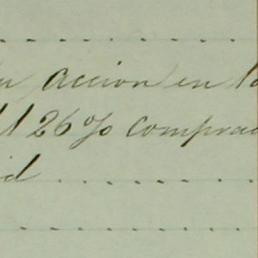 accion en la
26% comprad
id